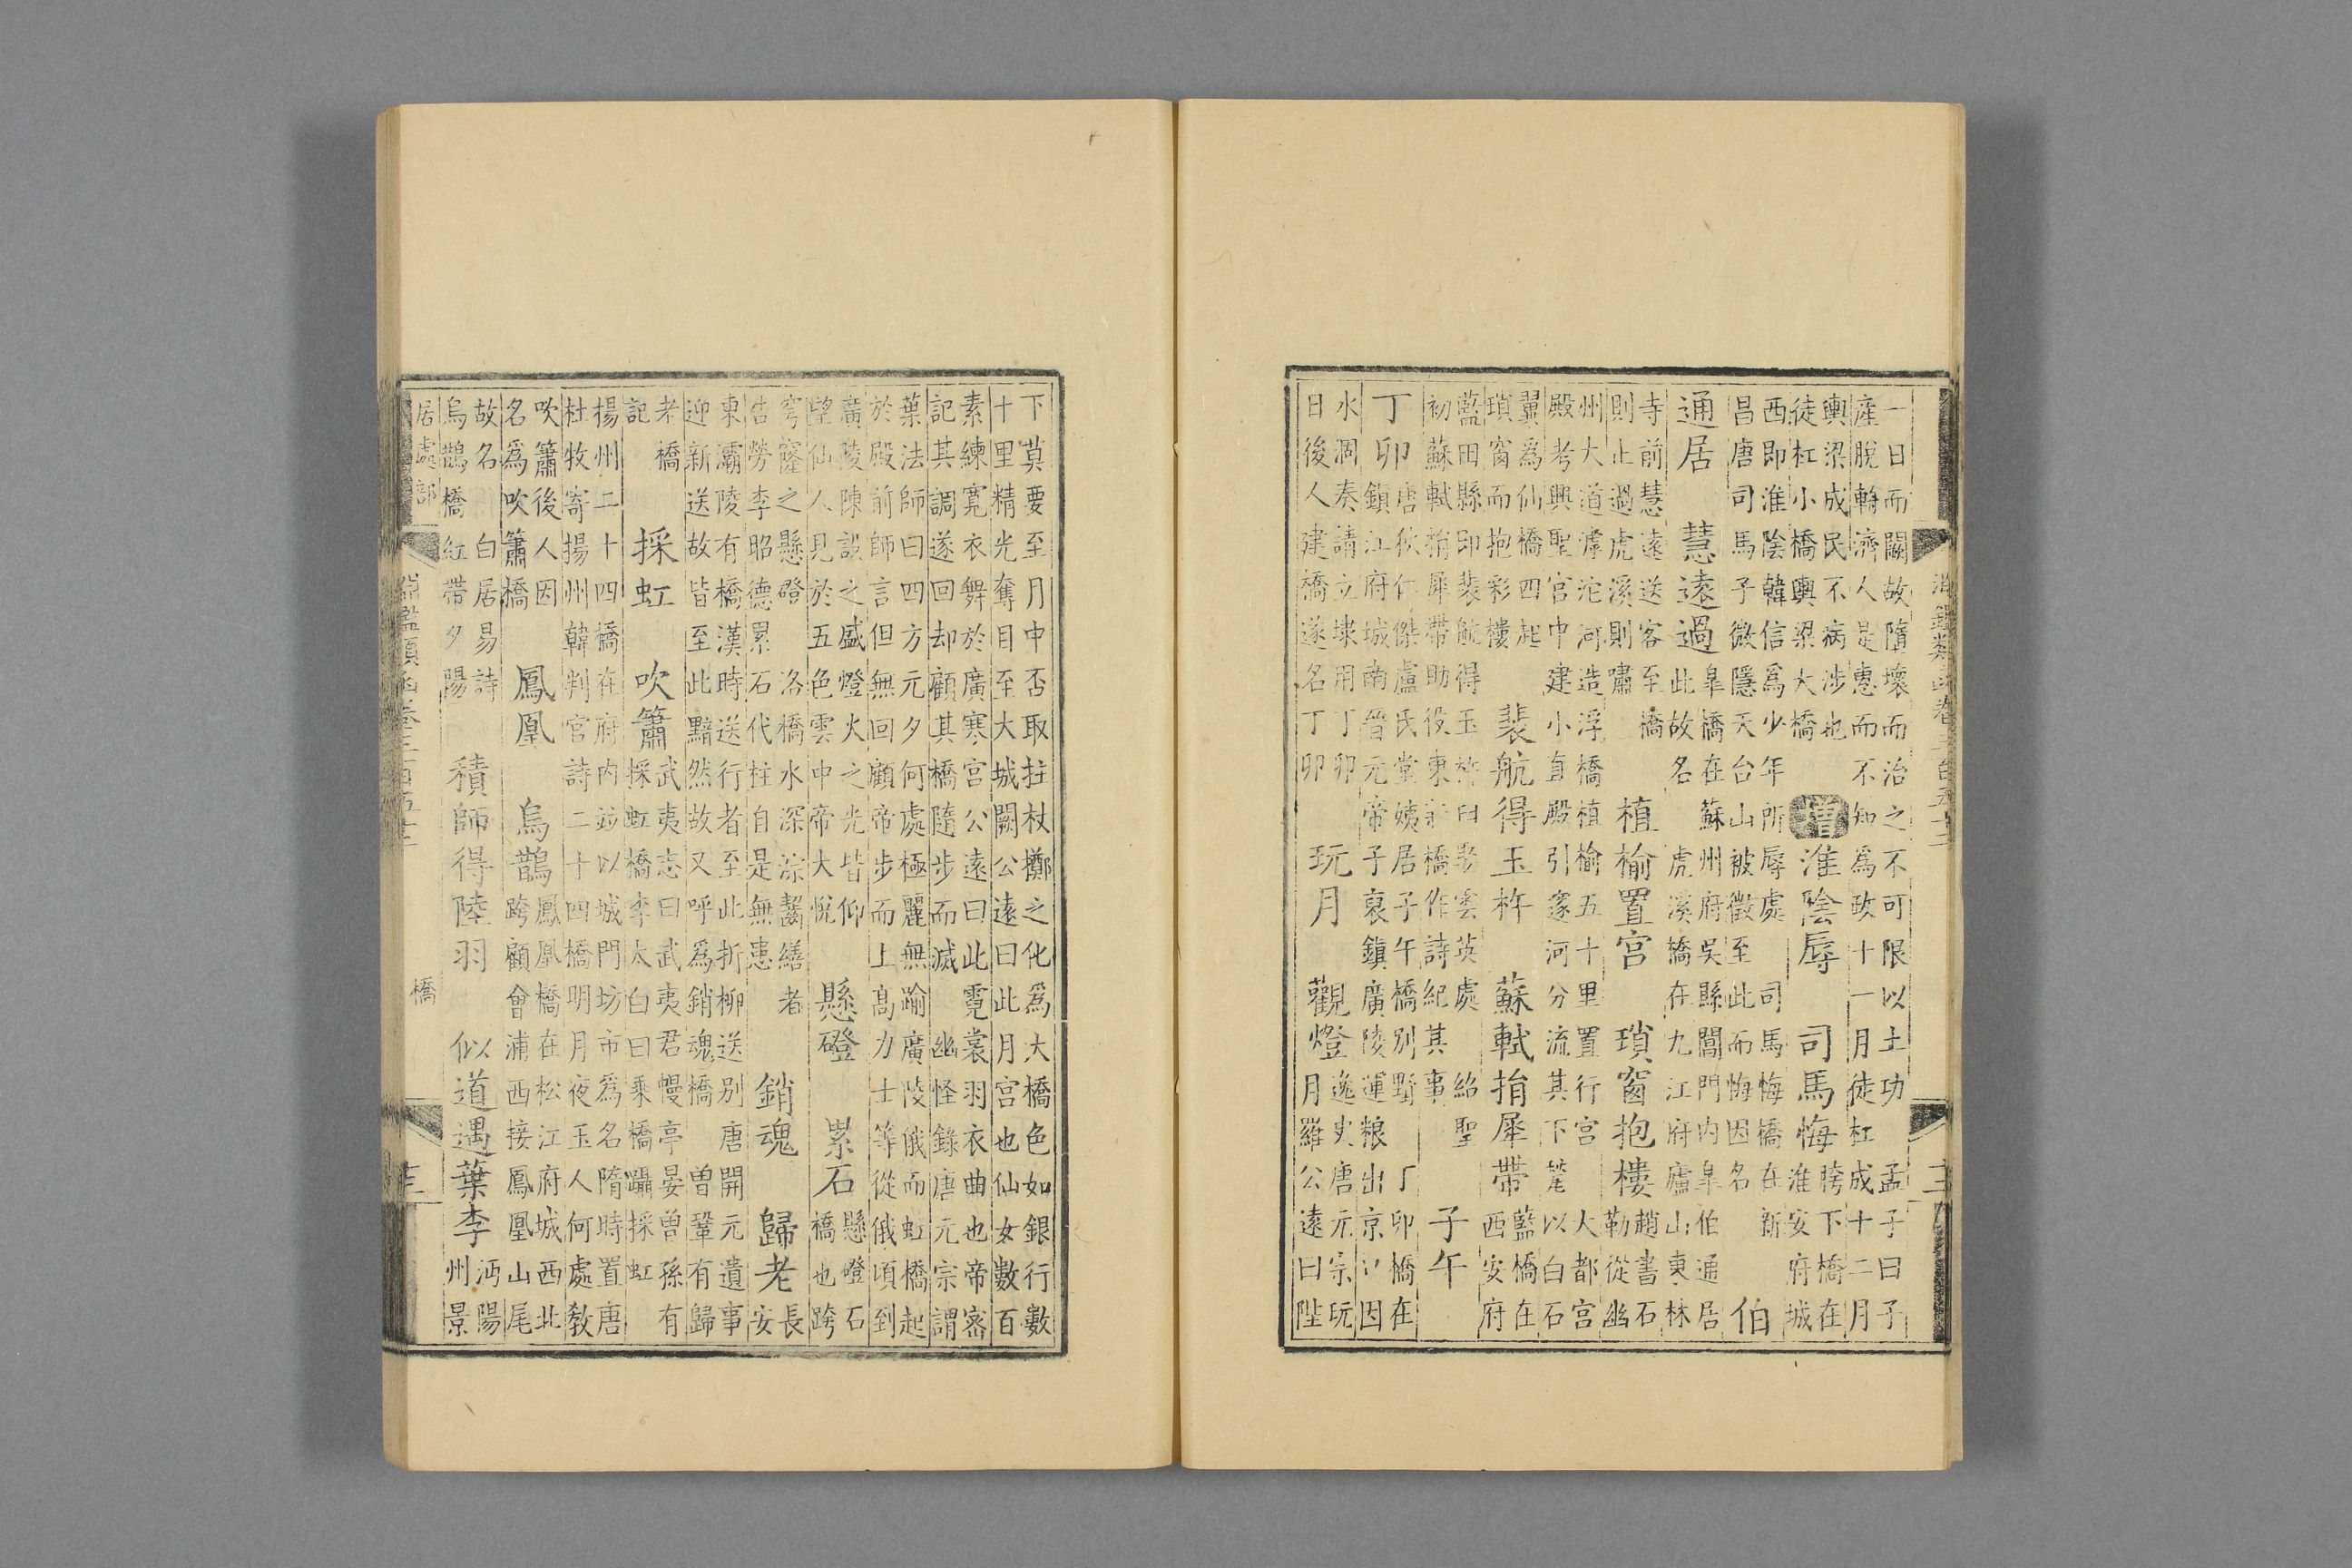 淵鑑類函卷三百五十二
一日而闕故隋壞而治之不可限以土功　孟子曰子
産脫輈濟人是惠而不知為政十一月徒杠成十二月
輿梁成民不病涉也
徒杠小橋輿梁大橋
增　淮陰辱　司馬悔
胯下橋在
淮安府城
西即淮陰韓信為少年所辱處　司馬悔橋在新
昌唐司馬子微隱天台山被徵至此而悔因名
伯
通居　慧遠過
皐橋在蘇州府吳縣閶門内皐伯通居
此故名　虎溪橋在九江府廬山東林
寺前慧遠送客至橋
則止過虎溪則嘯
植榆置宮　瑣窗抱樓
趙書石
勒從幽
州大道滹沱河造浮橋植榆五十里置行宮　大都宮
殿考興聖宮中建小直殿引篴河分流其下甃以白石
翼為仙橋四起
瑣窗而抱彩樓
裴航得玉杵　蘇軾捐犀帶
藍橋在
西安府
藍田縣即裴航得玉杵臼娶雲英處　紹聖
初蘇軾捐犀帶助役東新橋作詩紀其事
子午
丁卯
唐狄仁傑盧氏堂姨居子午橋别墅　丁卯橋在
鎮江府城南晉元帝子裒鎮廣陵運粮出京口因
水涸奏請立埭用丁卯
日後人建橋遂名丁卯
玩月　觀燈
逸史唐元宗玩
月羅公遠曰陛
下莫要至月中否取拄杖擲之化為大橋色如銀行數
十里精光奪目至大城闕公遠曰此月宮也仙女數百
素練寛衣舞於廣寒宮公遠曰此霓裳羽衣曲也帝密
記其調遂回却顧其橋隨步而滅　幽怪錄唐元宗謂
葉法師曰四方元夕何處極麗無踰廣陵俄而虹橋起
於殿前師言但無回顧帝步而上髙力士等從俄頃到
廣陵陳設之盛燈火之光皆仰
望仙人見於五色雲中帝大悅
懸磴　累石
懸磴石
橋也跨
穹窿之懸磴　洛橋水深淙齧繕者
告勞李昭德累石代柱自是無患
銷魂　歸老
長
安
東灞陵有橋漢時送行者至此折柳送别　唐開元遺事
迎新送故皆至此黯然故又呼為銷魂橋　曽鞏有歸
老橋
記
採虹　吹簫
武夷志曰武夷君幔亭晏曽孫有
採虹橋李太白曰乘橋躡採虹
揚州二十四橋在府内並以城門坊市為名隋時置唐
杜牧寄揚州韓判官詩二十四橋明月夜玉人何處敎
吹簫後人因
名為吹簫橋
鳳凰　烏鵲
鳳凰橋在松江府城西北
跨顧會浦西接鳳凰山尾
故名　白居易詩
烏鵲橋紅帶夕陽
積師得陸羽　似道遇葉李
沔陽
州景
居處部　淵鑑類函卷三百五十二　橋